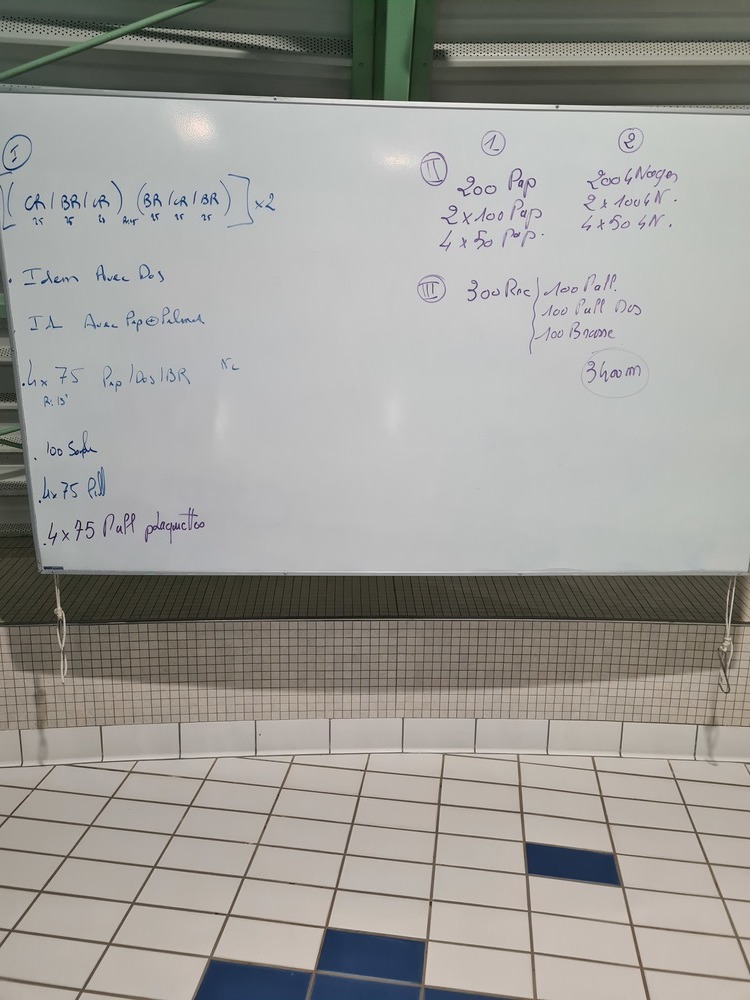 I
[(CR/BR/CR) (BR/CR/BR)] x2
25 25 25 R:15 25 25 25
. Idem Avec Dos
Id Avec Pap⊕Palmes
.4x 75 Pap/Dos/BR Nc
R:15'
.100 Souple
.4x75 Pull
.4x75 Pull plaquettes
1
II
200 Pap
2x100 Pap
4x50 Pap.
2
200 4Nages
2x100 4N.
4x50 4N.
III 300 Rec 100 Pull.
100 Pull Dos
100 Brasse
3400m